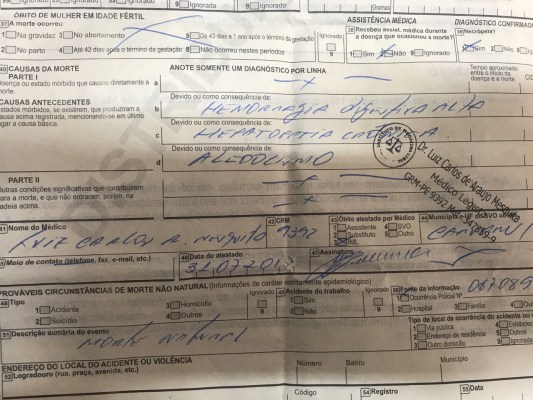 ÓBITO DE MULHER EM IDADE FÉRTIL
37 A morte ocorreu
1 Na gravidez 3 No abortamento 5 De 43 dias a 1 ano após o término da gestação
2 No parto 4 Até 42 dias após o término da gestação 8 Não ocorreu nestes períodos
9 Ignorado
ASSISTÊNCIA MÉDICA
38 Recebeu assist. médica durante a doença que ocasionou a morte?
1 Sim 2 Não 9 Ignorado
DIAGNÓSTICO CONFIRMADO
39 Necrópsia?
1 Sim 2 Não
Gramas
40 CAUSAS DA MORTE
PARTE I
Doença ou estado mórbido que causou diretamente a morte.
ANOTE SOMENTE UM DIAGNÓSTICO POR LINHA
Tempo aproximado entre o início da doença e a morte
CID
a
Devido ou como consequência de:
CAUSAS ANTECEDENTES
Estados mórbidos, se existirem, que produziram a causa acima registrada, mencionando-se em último lugar a causa básica.
b HEMORRAGIA DIGESTIVA ALTA
Devido ou como consequência de:
c HEPATOPATIA CRÔNICA
Devido ou como consequência de:
d ALCOOLISMO
PARTE II
Outras condições significativas que contribuíram para a morte, e que não entraram, porém, na cadeia acima.
Dr. Luiz Carlos de Araujo Mesquita
Médico Legista
CRM-PE 9392
41 Nome do Médico
LUIZ CARLOS A. MESQUITA
42 CRM
9392
43 Óbito atestado por Médico
1 Assistente 4 SVO
2 Substituto 5 Outro
3 IML
44 Município e UF do SVO ou IML
45 Meio de contato (telefone, fax, e-mail, etc.)
46 Data do atestado
47 Assinatura
PROVÁVEIS CIRCUNSTÂNCIAS DE MORTE NÃO NATURAL (Informações de caráter estritamente epidemiológico)
48 Tipo
1 Acidente 3 Homicídio
2 Suicídio 4 Outros
Ignorado
9
49 Acidente do trabalho
1 Sim
2 Não
Ignorado
9
50 Fonte da informação
1 Ocorrência Policial Nº
2 Hospital 3 Família 4 Outra
51 Descrição sumária do evento
MORTE NATURAL
Tipo de local de ocorrência do acidente
1 Via pública
2 Endereço de residência
3 Outro domicílio
5 Outros
9 Ignorada
ENDEREÇO DO LOCAL DO ACIDENTE OU VIOLÊNCIA
52 Logradouro (rua, praça, avenida, etc.)
Número Bairro Município
Código
54 Registro
55 Data